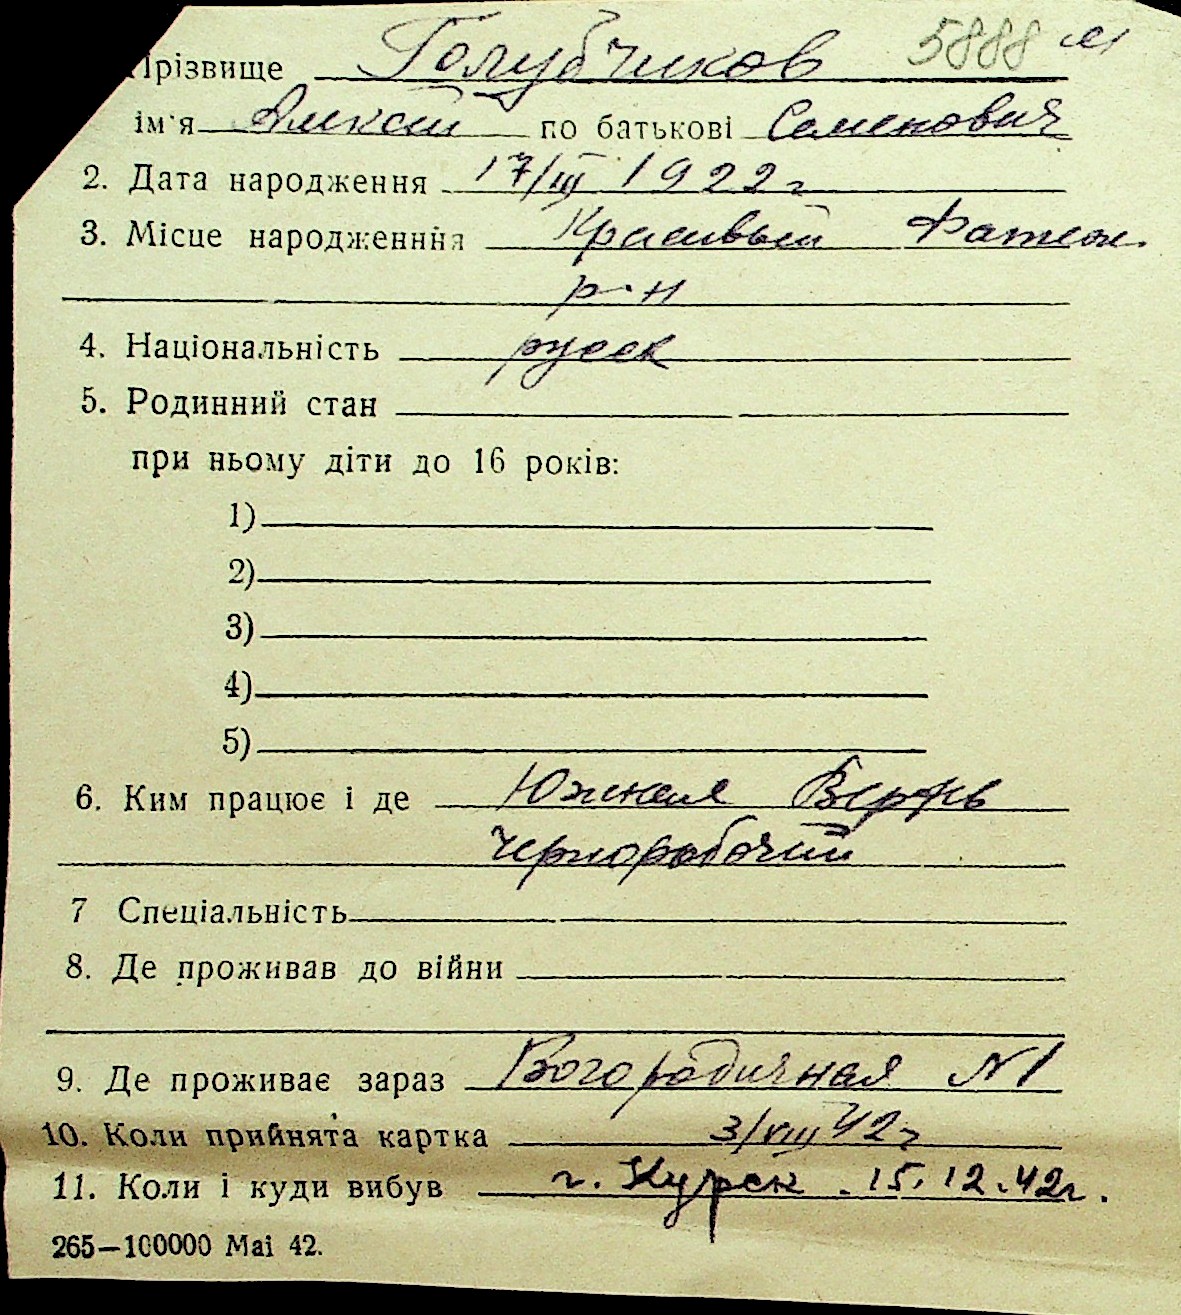 Прізвище Голубчиков 5888
ім'я Алексей по батькові Семенович
2. Дата народження 17/III 1922 г
3. Місце народженння Красивый Фатеж.
р-н
4. Національність русск
5. Родинний стан
при ньому діти до 16 років:
1)
2)
3)
4)
5)
6. Ким працює і де Южная Верфь
Чернорабочий
7 Спеціальність
8. Де проживав до війни
9. Де проживає зараз Богородичная N1
10. Коли прийнята картка 3/VIII 42 г
11. Коли і куди вибув г. Курск. 15.12.42г.
265—100000 Mai 42.